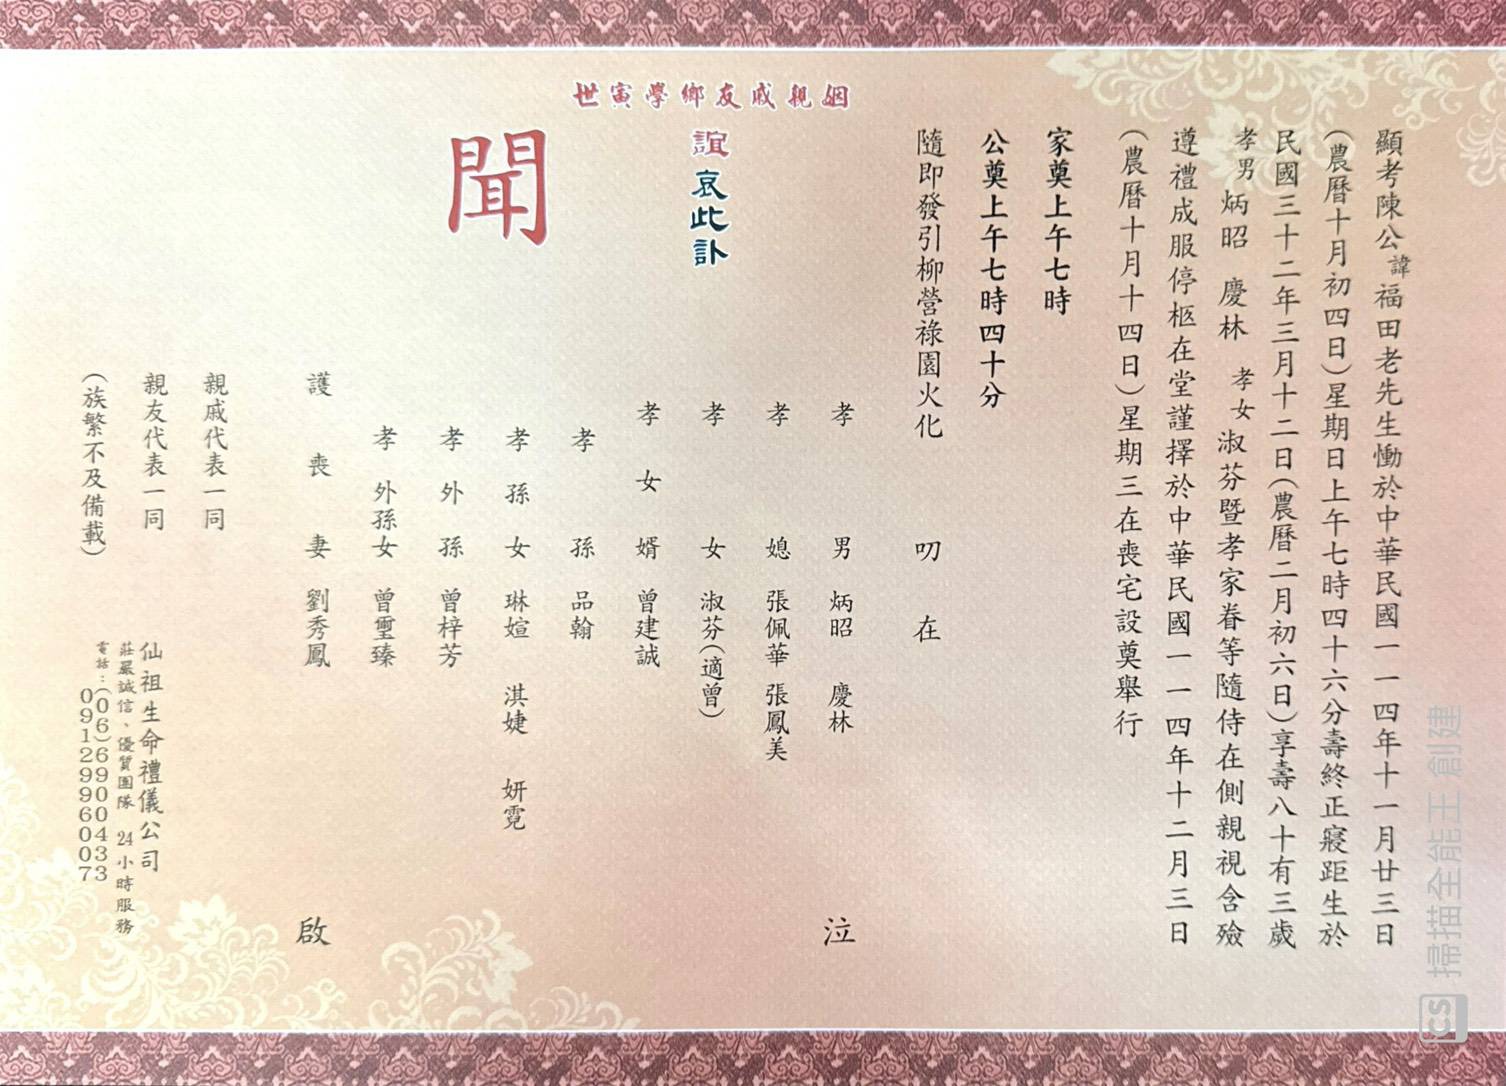 顯考陳公諱福田老先生慟於中華民國一一四年十一月廿三日
(農曆十月初四日)星期日上午七時四十六分壽終正寢距生於
民國三十二年三月十二日(農曆二月初六日)享壽八十有三歲
孝男炳昭 慶林 孝女淑芬暨孝家眷等隨侍在側親視含殮
遵禮成服停柩在堂謹擇於中華民國一一四年十二月三日
(農曆十月十四日)星期三在喪宅設奠舉行
家奠上午七時
公奠上午七時四十分
隨即發引柳營祿園火化
叨在
姻親戚友鄉學寅世
誼哀此訃
聞
孝男 炳昭 慶林 泣
孝媳 張佩華 張鳳美
孝女 淑芬(適曾)
孝女婿 曾建誠
孝孫 品翰
孝孫女 琳媗 淇婕 妍霓
孝外孫 曾梓芳
孝外孫女 曾璽臻
護喪妻 劉秀鳳 啟
親戚代表一同
親友代表一同
(族繁不及備載)
仙祖生命禮儀公司
莊嚴誠信、優質團隊 24小時服務
電話:(06)6990433
0912996073
掃描全能王 創建
CS